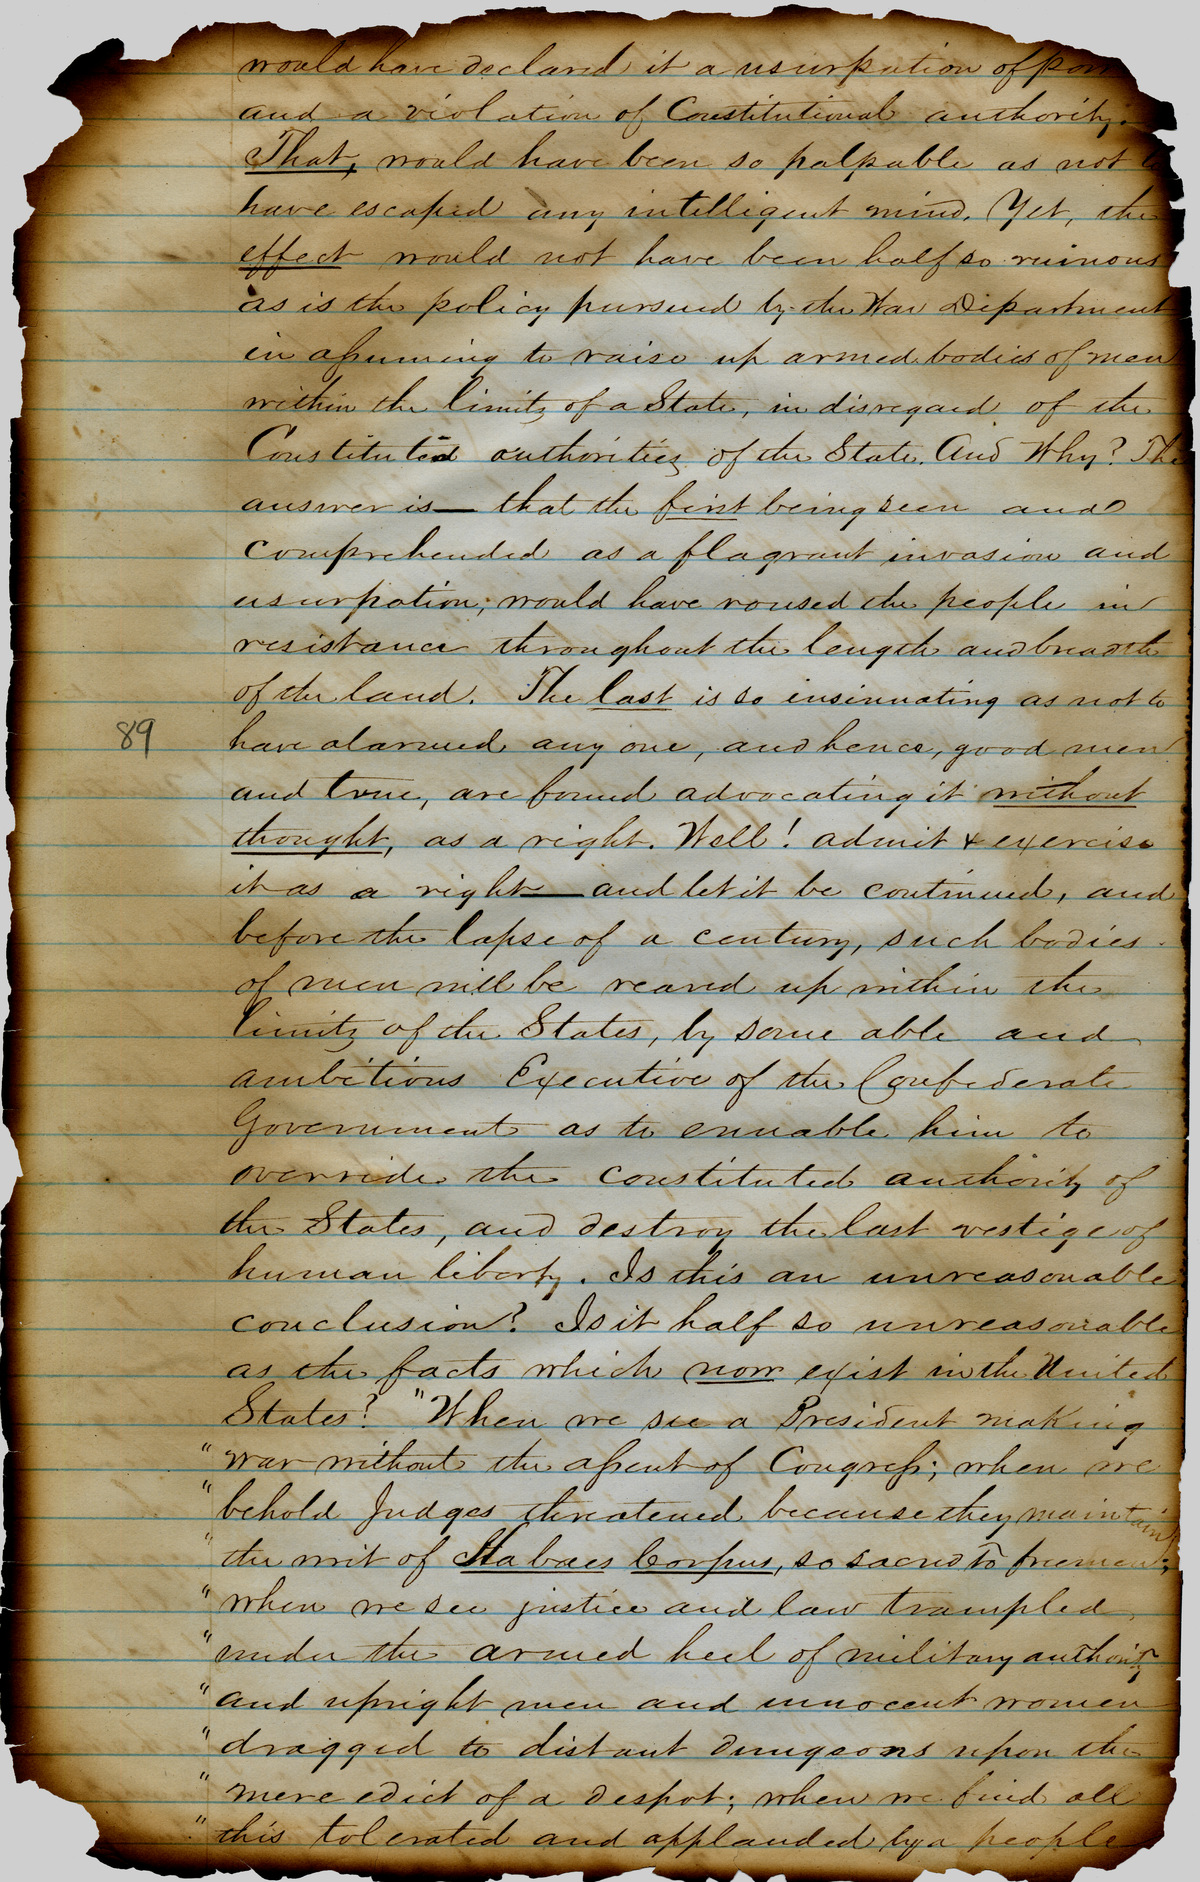 would have declared it a usurpation of pow
and a violation of Constitutional authority.
That, would have been so palpable as not to
have escaped any intelligent mind. Yet, the
effect would not have been half so ruinous
as is the policy pursued by the War Department
in assuming to raise up armed bodies of men
within the limits of a State, in disregard of the
Constituted authorities of the State. And Why? The
answer is — that the first being seen and
comprehended as a flagrant invasion and
usurpation; would have roused the people in
resistance throughout the length and breadth
of the land. The last is so insinuating as not to
89 have alarmed any one, and hence, good men
and true, are found advocating it without
thought, as a right. Well! admit & exercise
it as a right — and let it be continued, and
before the lapse of a century, such bodies
of men will be reared up within the
limits of the States, by some able and
ambitious Executive of the Confederate
Government as to ennable him to
override the constituted authority of
the States, and destroy the last vestige of
human liberty. Is this an unreasonable
conclusion? Is it half so unreasonable
as the facts which now exist in the United
States? "When we see a President making
"war without the assent of Congress; when we
"behold Judges threatened because they maintain
"the writ of Habaes Corpus, so sacred to freemen;
"when we see justice and law trampled
"under the armed heel of military authority
"and upright men and innocent women
"dragged to distant dungeons upon the
"mere edict of a despot; when we find all
"this tolerated and applauded by a people